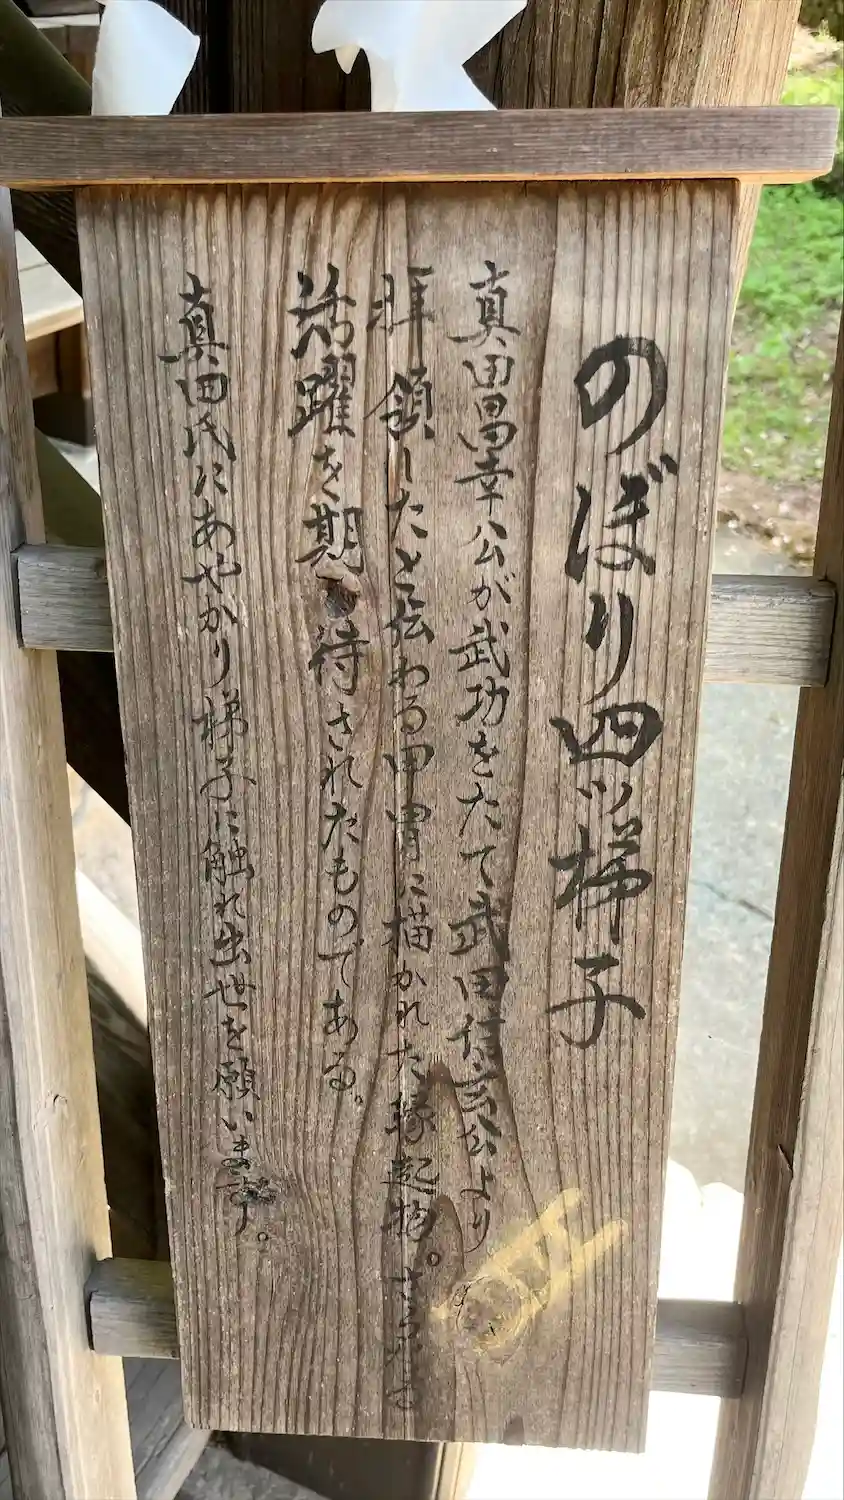 のぼり四ツ梯子
真田昌幸公が武功をたて武田信玄公より
拝領したと伝わる甲冑に描かれた縁起物。さらなる
活躍を期待されたものである。
真田氏にあやかり梯子に触れ出世を願います。